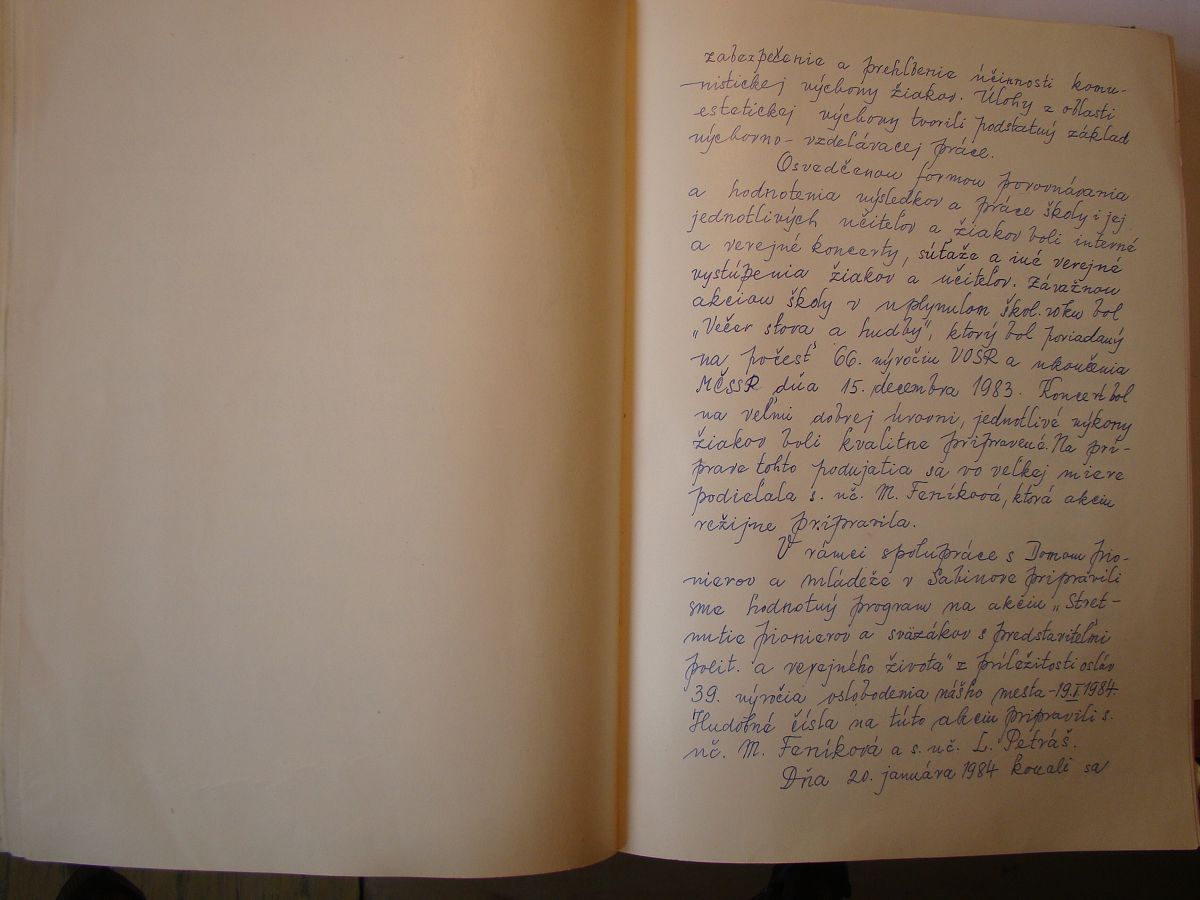 zabezpečenie a prehĺbenie účinnosti komu-
nistickej výchovy žiakov. Úlohy z oblasti
estetickej výchovy tvorili podstatný základ
výchovno-vzdelávacej práce.
Osvedčenou formou porovnávania
a hodnotenia výsledkov a práce školy i jej
jednotlivých učiteľov a žiakov boli interné
a verejné koncerty, súťaže a iné verejné
vystúpenia žiakov a učiteľov. Závažnou
akciou školy v uplynulom škol. roku bol
„Večer slova a hudby", ktorý bol poriadaný
na počesť 66. výročiu VOSR a ukončenia
MČSSP dňa 15. decembra 1983. Koncert bol
na veľmi dobrej úrovni, jednotlivé výkony
žiakov boli kvalitne pripravené. Na prí-
prave tohto podujatia sa vo veľkej miere
podieľala s. uč. M. Feníková, ktorá akciu
režijne pripravila.
V rámci spolupráce s Domom pio-
nierov a mládeže v Sabinove pripravili
sme hodnotný program na akciu „Stret-
nutie pionierov a sväzákov s predstaviteľmi
polit. a verejného života" z príležitosti osláv
39. výročia oslobodenia nášho mesta - 19.I.1984
Hudobné čísla na túto akciu pripravili s.
uč. M. Feníková a s. uč. L. Petráš.
Dňa 20. januára 1984 konali sa